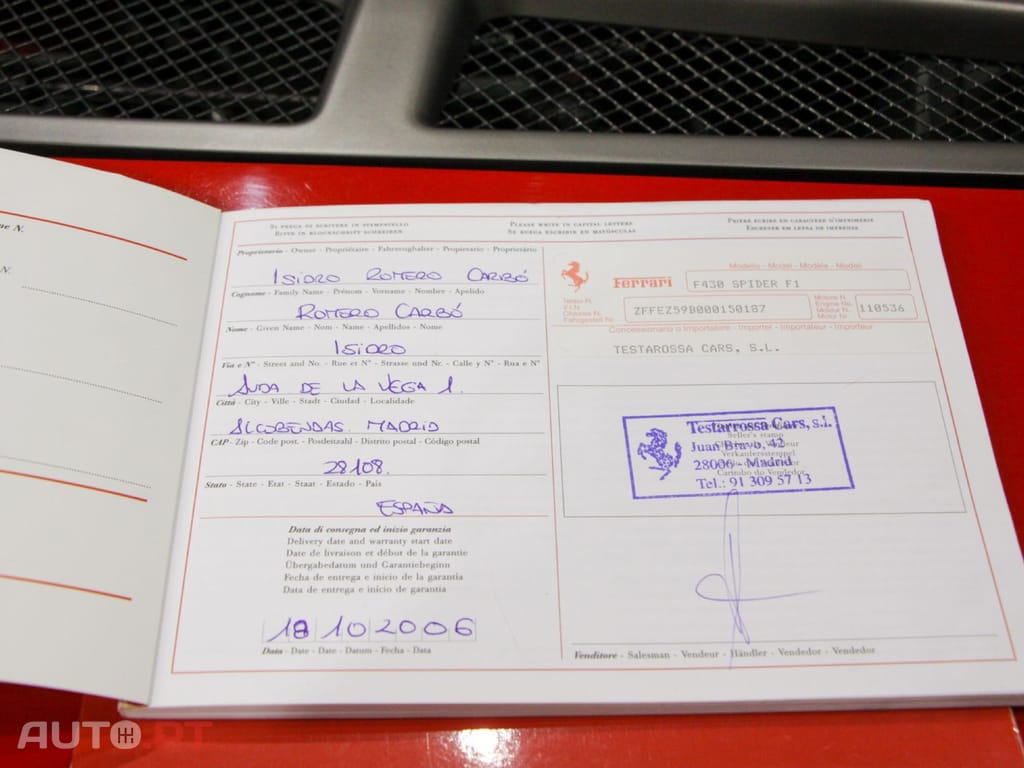 ne N.
N.
SI PREGA DI SCRIVERE IN STAMPATELLO
BITTE IN BLOCKSCHRIFT SCHREIBEN
PLEASE WRITE IN CAPITAL LETTERS
SE RUEGA ESCRIBIR EN MAYÚSCULAS
PRIÈRE ÉCRIRE EN CARACTÈRE D'IMPRIMERIE
ESCREVER EM LETRA DE IMPRENSA
Proprietario - Owner - Propriétaire - Fahrzeughalter - Propietario - Proprietário
ISIDRO ROMERO CARBÓ
Cognome - Family Name - Prénom - Vorname - Nombre - Apelido
ROMERO CARBÓ
Nome - Given Name - Nom - Name - Apellidos - Nome
ISIDRO
Via e N° - Street and No. - Rue et N° - Strasse und Nr. - Calle y N° - Rua e N°
AVDA DE LA VEGA 1.
Città - City - Ville - Stadt - Ciudad - Localidade
ALCOBENDAS. MADRID
CAP - Zip - Code post. - Postleitzahl - Distrito postal - Código postal
28108.
Stato - State - Etat - Staat - Estado - País
ESPAÑA
Data di consegna ed inizio garanzia
Delivery date and warranty start date
Date de livraison et début de la garantie
Übergabedatum und Garantiebeginn
Fecha de entrega e inicio de la garantía
Data de entrega e início de garantia
18 10 2006
Data - Date - Date - Datum - Fecha - Data
Modello - Model - Modèle - Modell
Ferrari
F430 SPIDER F1
Telaio N.
V.I.N.
Chassis N.
Fahrgestell Nr.
ZFFEZ59B000150187
Motore N.
Engine No.
Moteur N.
Motor Nr.
110536
Concessionario o Importatore - Importer - Importateur - Importeur
TESTAROSSA CARS, S.L.
Testarrossa Cars, s.l.
Seller's stamp
Juan Bravo, 42
Verkäuferstempel
28006 - Madrid
Carimbo do Vendedor
Tel.: 91 309 57 13
Venditore - Salesman - Vendeur - Händler - Vendedor - Vendedor
AUTO PT